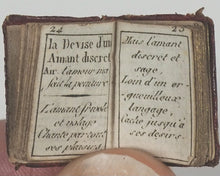 24
la Devise d'un
Amant discret
Sur l'amour ma
fait le peinture
L'amant frivole
et volage
Chante par tout
ses plaisirs
25
Mais l'amant
discret et
sage,
Loin d'un or-
gueilleux
langage,
Cache jusqu'à
ses desirs.